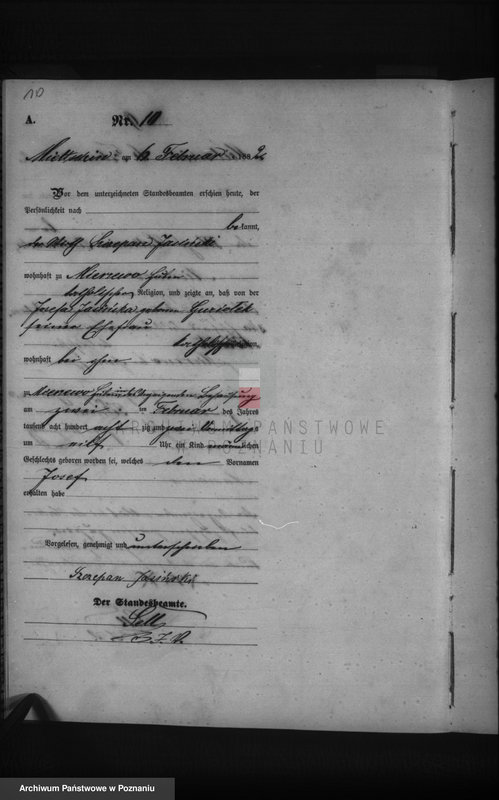 10
A.
Nr. 10
am 6 Februar 1882
Vor dem unterzeichneten Standesbeamten erschien heute, der
Persönlichkeit nach
bekannt,
Szczepan Jasinski
wohnhaft zu Mienewo
katholischer Religion, und zeigte an, daß von der
Josefa geborene
seiner Ehefrau
katholischer Religion,
wohnhaft bei ihm
zu Mienewo
am zwei ten Februar des Jahres
tausend acht hundert acht zig und zwei Vormittags
um elf Uhr ein Kind männlichen
Geschlechts geboren worden sei, welches den Vornamen
Josef
erhalten habe
Vorgelesen, genehmigt und unterschrieben
Szczepan Jasinski
Der Standesbeamte.
ARCHIWUM PAŃSTWOWE
W POZNANIU
Archiwum Państwowe w Poznaniu